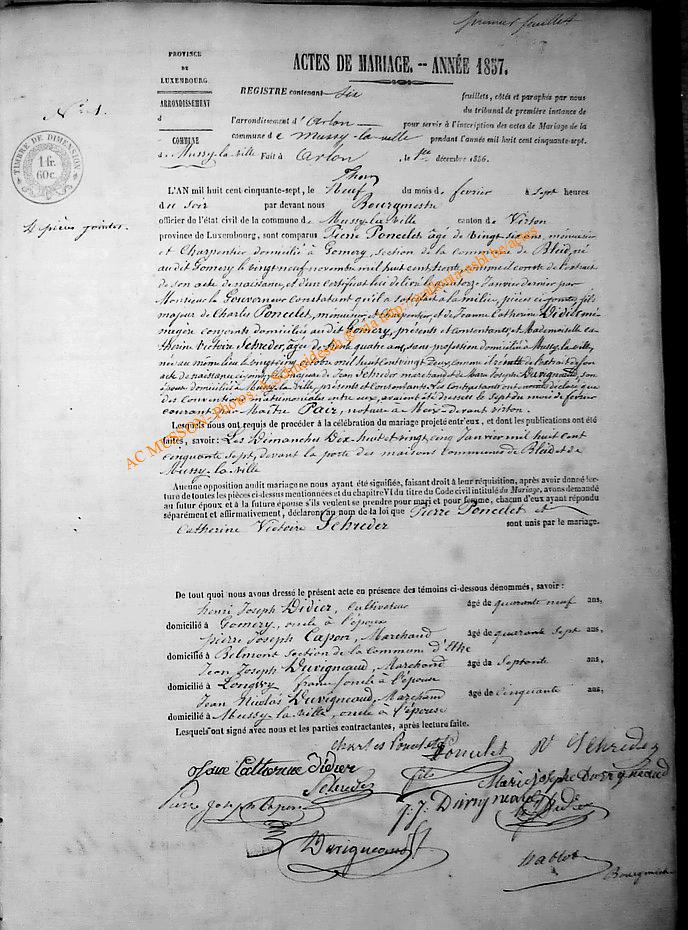 premier feuillet
ACTES DE MARIAGE. -- ANNÉE 1857.
PROVINCE
DE
LUXEMBOURG.
ARRONDISSEMENT
d
COMMUNE
de Mussy-la-ville
REGISTRE contenant six feuillets, côtés et paraphés par nous
du tribunal de première instance de
l'arrondissement d'Arlon pour servir à l'inscription des actes de Mariage de la
commune de Mussy-la-ville pendant l'année mil huit cent cinquante-sept.
Fait à Arlon, le 1er décembre 1856.
N° 1.
TIMBRE DE DIMENSION
1 fr.
60 c.
4 pièces jointes
L'AN mil huit cent cinquante-sept, le neuf du mois de février à sept heures
du soir par devant nous Bourgmestre
officier de l'état civil de la commune de Mussy-la-ville canton de Virton
province de Luxembourg, sont comparus Pierre Poncelet âgé de vingt six ans, menuisier
et Charpentier domicilié à Gomery, section de la commune de Bleid, né
au dit Gomery le vingt neuf novembre mil huit cent trente, comme il conste de l'extrait
de son acte de naissance, et d'un certificat lui délivré le quatorze Janvier dernier par
Monsieur le Gouverneur constatant qu'il a satisfait à la milice, pièces ci-jointes, fils
majeur de Charles Poncelet, menuisier et charpentier, et de Jeanne Catherine Didier
ménagère conjoints domiciliés au dit Gomery, présents et consentants, et Mademoiselle Ca-
therine Victoire Schreder, âgée de trente quatre ans, sans profession domiciliée à Mussy-la-ville,
née au même lieu le vingt cinq octobre mil huit cent vingt deux, comme il résulte de l'extrait de son
acte de naissance ci-joint, fille majeure de Jean Schreder marchand et de Marie Josephe Duvigneaud, son
épouse domiciliés à Mussy-la-ville, présents et consentants. Les contractants ont déclaré que
des Conventions matrimoniales entre eux, avaient été dressées le sept du mois de février
courant par Maître Paix, notaire à Meix-devant-virton.
Lesquels nous ont requis de procéder à la célébration du mariage projeté entr'eux, et dont les publications ont été
faites, savoir: Les Dimanches Dix huit et vingt cinq Janvier mil huit cent
cinquante sept, devant la porte des maisons Communes de Bleid et de
Mussy-la-ville
Aucune opposition audit mariage ne nous ayant été signifiée, faisant droit à leur réquisition, après avoir donné lec-
ture de toutes les pièces ci-dessus mentionnées et du chapitre VI du titre du Code civil intitulé du Mariage, avons demandé
au futur époux et à la future épouse s'ils veulent se prendre pour mari et pour femme, chacun d'eux ayant répondu
séparément et affirmativement, déclarons au nom de la loi que Pierre Poncelet et
Catherine Victoire Schreder sont unis par le mariage.
De tout quoi nous avons dressé le présent acte en présence des témoins ci-dessous dénommés, savoir:
henri Joseph Didier, Cultivateur âgé de quarante neuf ans,
domicilié à Gomery, oncle à l'époux
Pierre Joseph Capon, Marchand âgé de quarante sept ans,
domicilié à Belmont section de la Commune d'Ethe
Jean Joseph Duvigneaud, Marchand âgé de septante ans,
domicilié à Longwy france oncle à l'épouse
Jean Nicolas Duvigneaud, Marchand âgé de Cinquante ans,
domicilié à Mussy-la-ville, oncle à l'épouse
Lesquels ont signé avec nous et les parties contractantes, après lecture faite.
Charles Poncelet Poncelet V Schreder
Jeanne Catherine Didier fils Marie Josephe Duvigneaud
Schreder
Pierre Joseph Capon J. J. Duvigneaud Didier
Duvigneaud
Bourgmestre
AC MUSSON - Photos